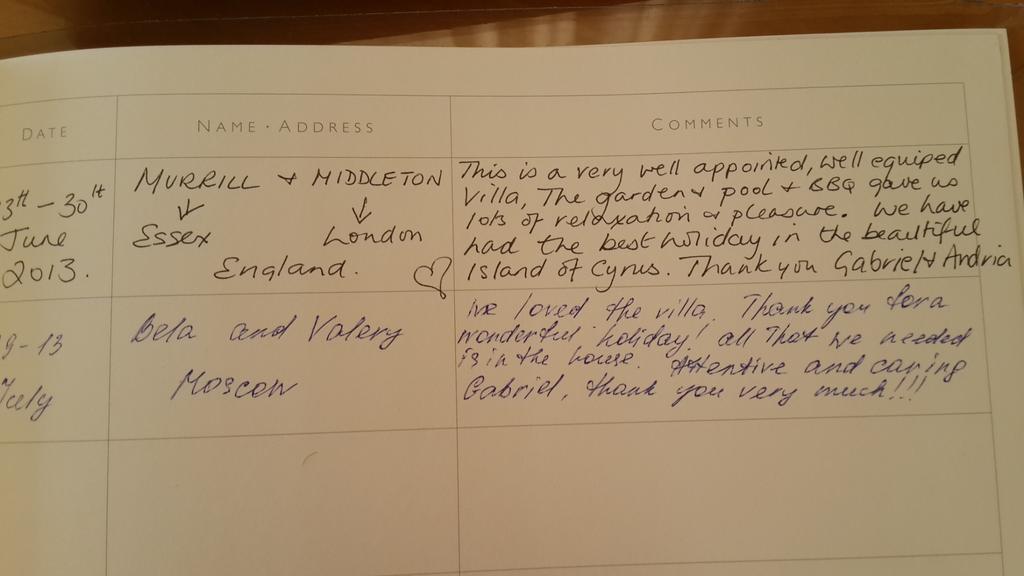 DATE NAME · ADDRESS COMMENTS
3th - 30th
June
2013.
MURRILL & MIDDLETON
Essex London
England.
This is a very well appointed, well equiped
Villa, The garden & pool & BBQ gave us
lots of relaxation & pleasure. We have
had the best holiday in the beautiful
Island of Cyrus. Thank you Gabriel & Andria
9-13
July
Bela and Valery
Moscow
We loved the villa. Thank you for a
wonderful holiday! all That we needed
is in the house. Attentive and caring
Gabriel, thank you very much!!!